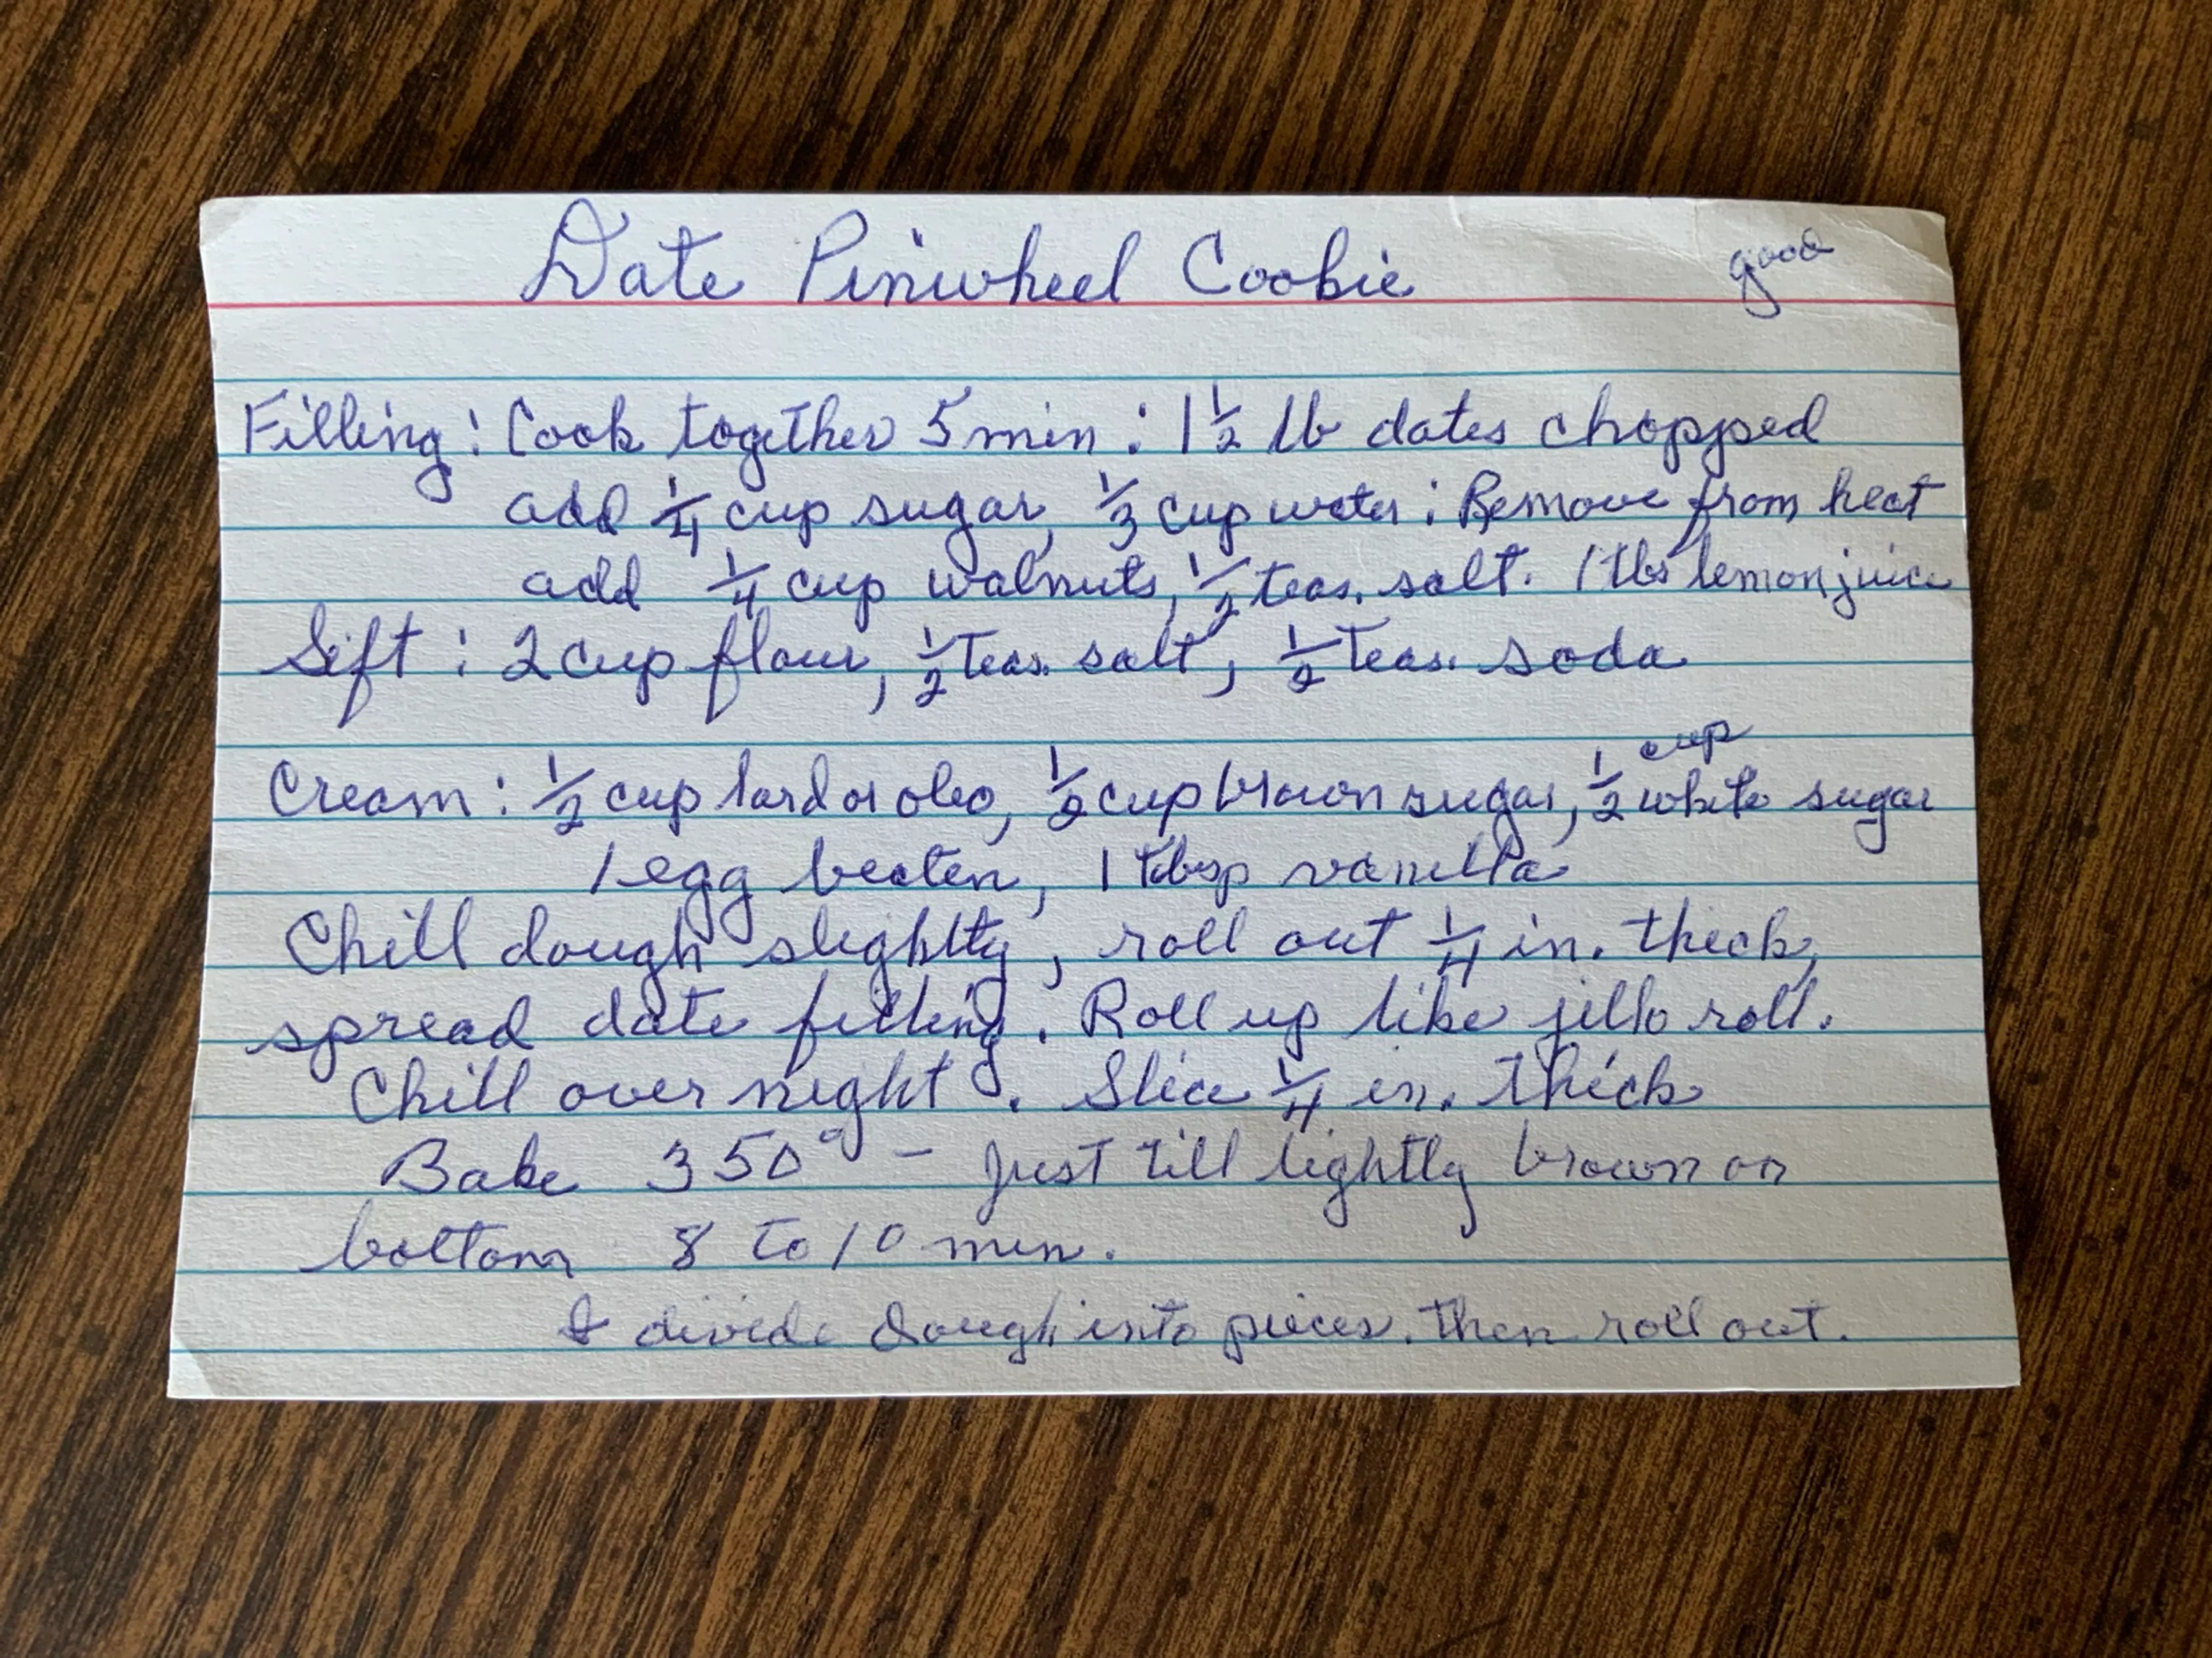 Date Pinwheel Cookie good
Filling: Cook together 5 min: 1 1/2 lb dates chopped
add 1/4 cup sugar, 1/3 cup water: Remove from heat
add 1/4 cup walnuts, 1/2 teas. salt. 1 tbs lemon juice
Sift: 2 cup flour, 1/2 Teas. salt, 1/2 Teas. soda
Cream: 1/2 cup lard or oleo, 1/2 cup brown sugar, 1/2 cup white sugar
1 egg beaten, 1 tbsp vanilla
Chill dough slightly, roll out 1/4 in. thick,
spread date filling. Roll up like jello roll.
Chill over night. Slice 1/4 in. thick
Bake 350° - Just till lightly brown on
bottom 8 to 10 min.
I divide dough into pieces. then roll out.